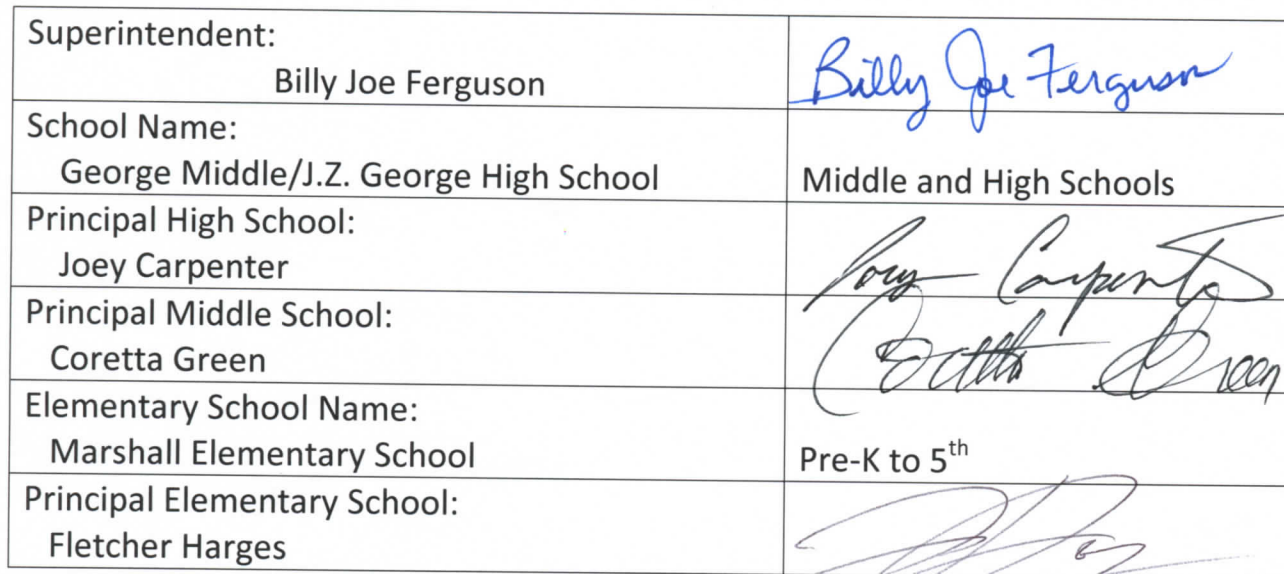 Superintendent:
Billy Joe Ferguson
Billy Joe Ferguson
School Name:
George Middle/J.Z. George High School
Middle and High Schools
Principal High School:
Joey Carpenter
Joey Carpenter
Principal Middle School:
Coretta Green
Coretta Green
Elementary School Name:
Marshall Elementary School
Pre-K to 5th
Principal Elementary School:
Fletcher Harges